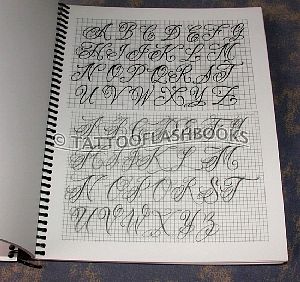 A B C D E F G
H I J K L M
N O P Q R S T
U V W X Y Z
© TATTOOFLASHBOOKS
A B C D E F G
H I J K L M
N O P Q R S T
U V W X Y Z